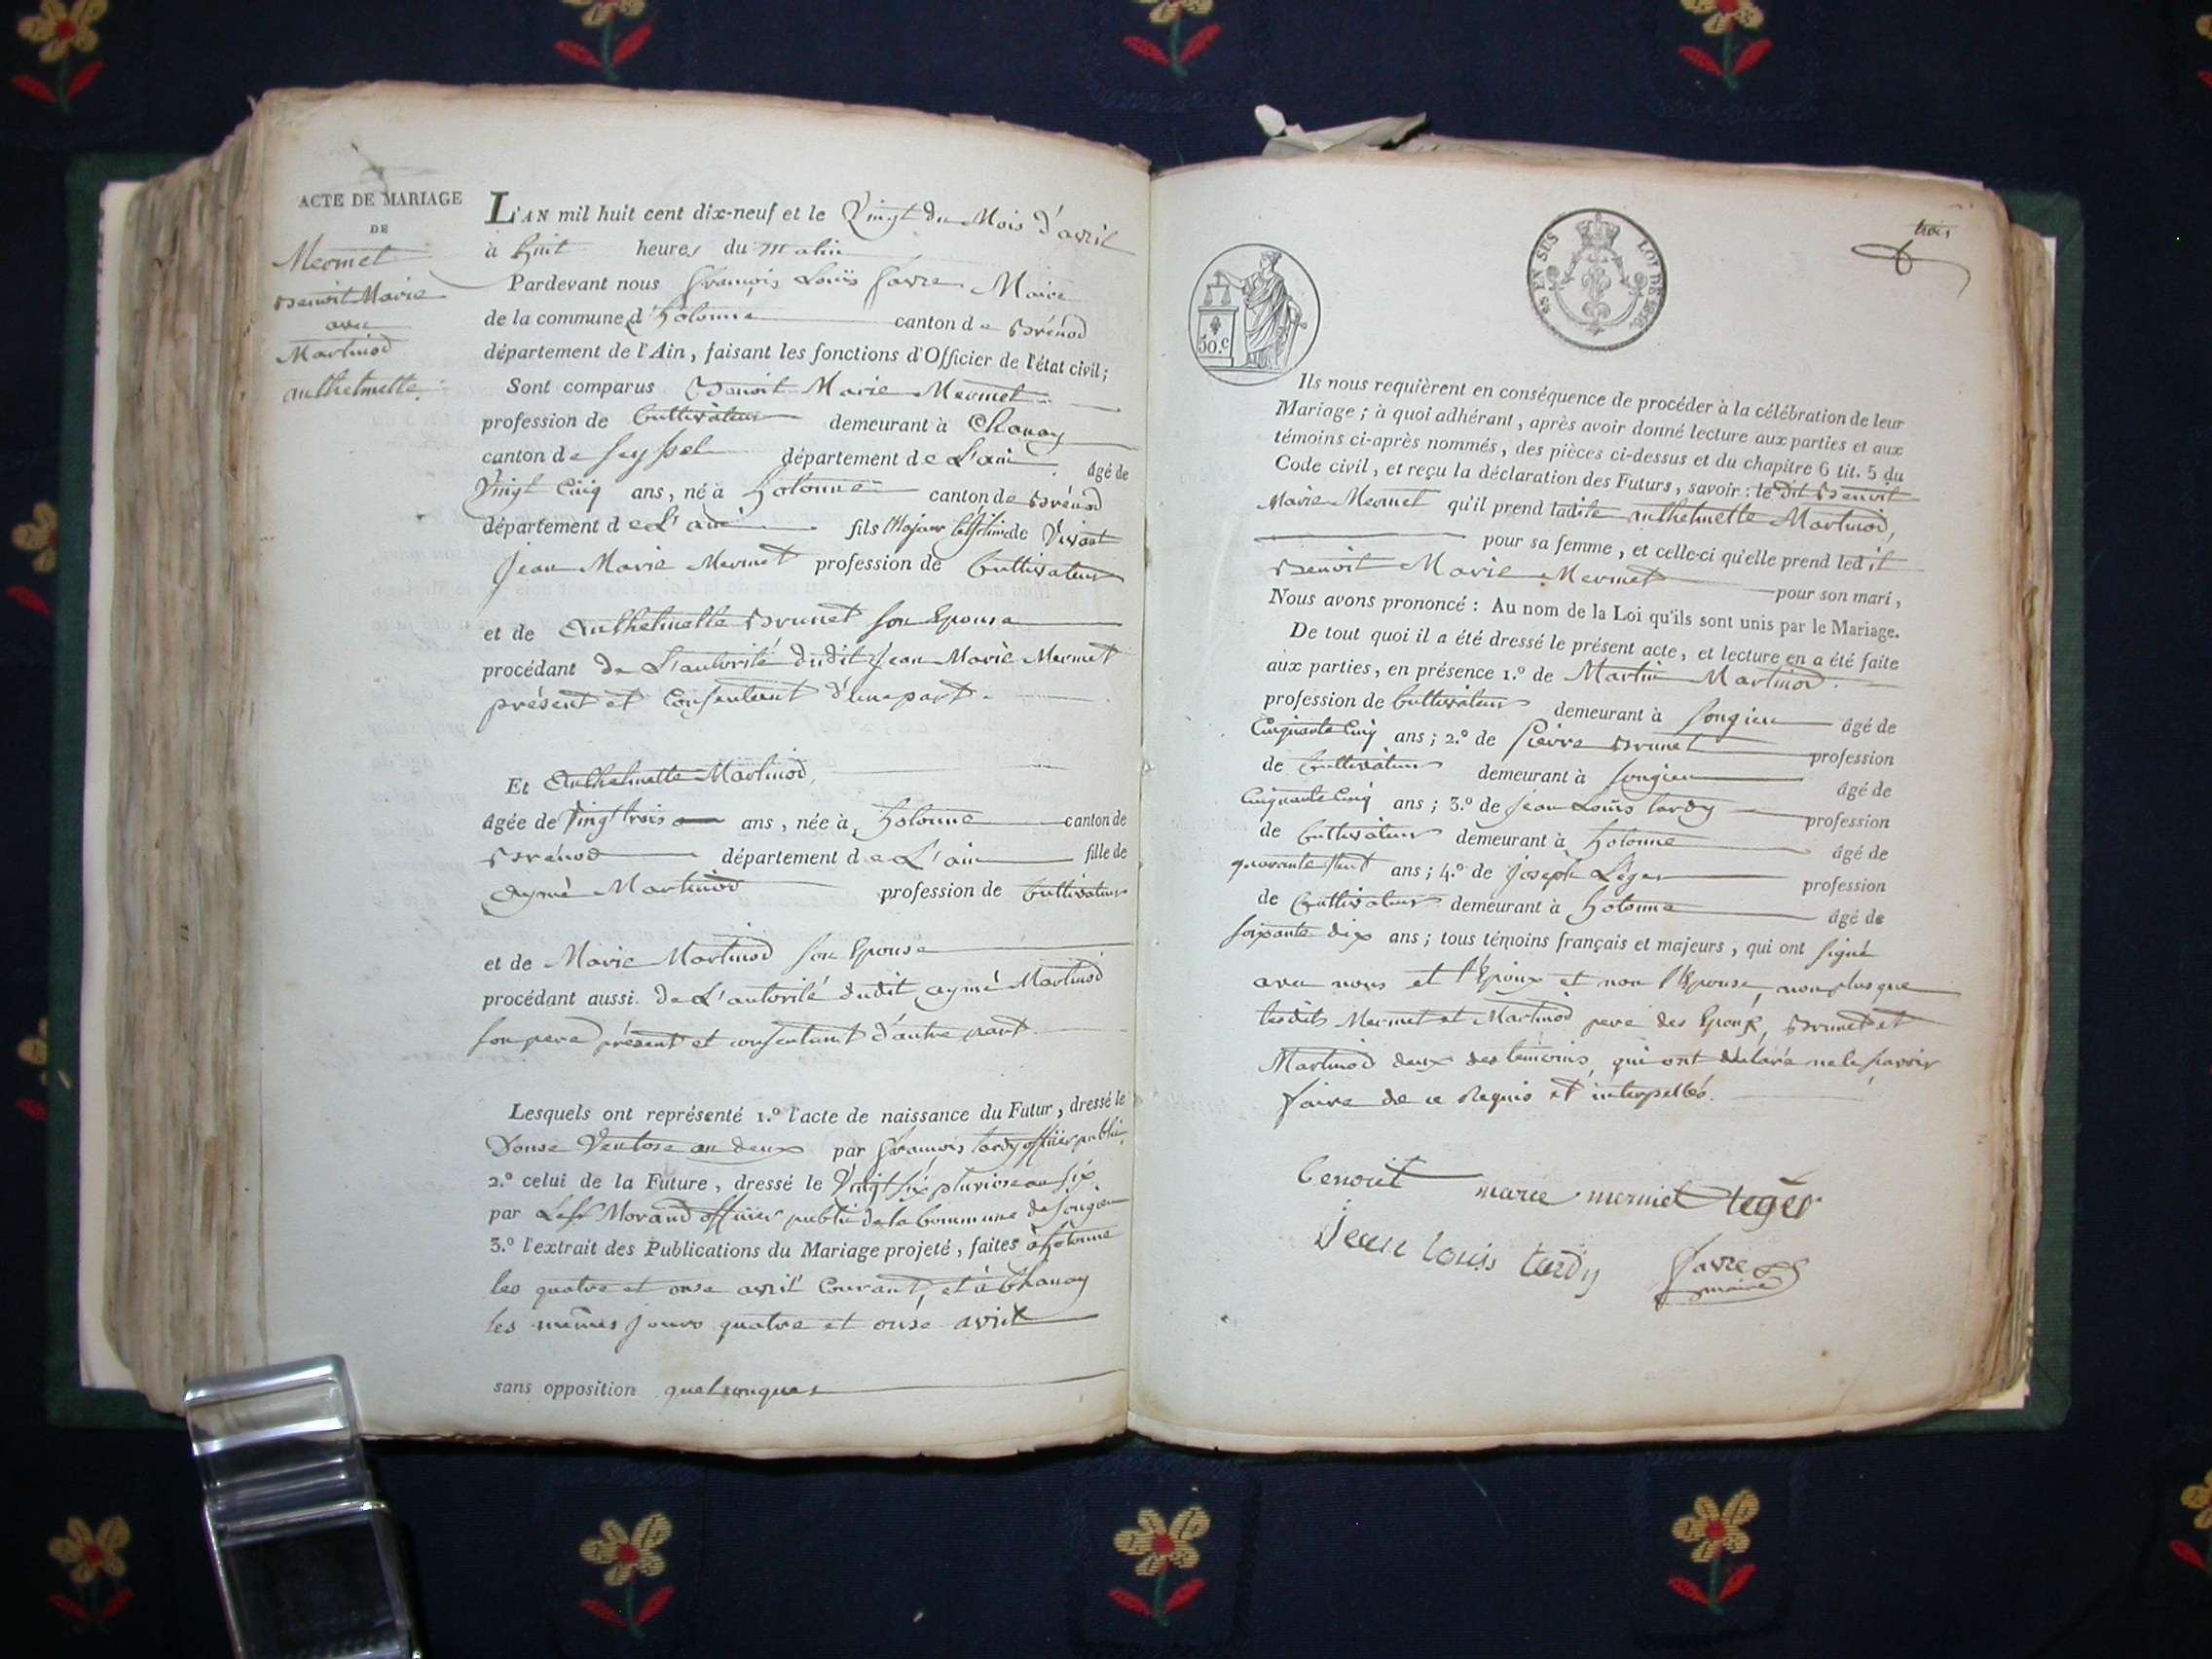 ACTE DE MARIAGE
DE
Mermet
Benoit Marie
avec
Martinod
anthelmette.
L'AN mil huit cent dix-neuf et le Vingt du Mois d'avril
à huit heures du matin
Pardevant nous François Louis favre Maire
de la commune d'hotonne canton de Brénod
département de l'Ain, faisant les fonctions d'Officier de l'état civil;
Sont comparus Benoit Marie Mermet
profession de Cultivateur demeurant à Chanay
canton de Seyssel département de L'ain âgé de
Vingt Cinq ans, né à hotonne canton de Brénod
département de L'ain fils Majeur légitime de Vivant
Jean Marie Mermet profession de Cultivateur
et de Anthelmette Brunet son Epouse
procédant de L'autorité dudit Jean Marie Mermet
présent et Consentant d'une part.
Et Anthelmette Martinod,
âgée de Vingt trois ans, née à hotonne canton de
Brénod département de L'ain fille de
Aymé Martinod profession de Cultivateur
et de Marie Martinod son Epouse
procédant aussi de L'autorité dudit aymé Martinod
son pere présent et consentant d'autre part
Lesquels ont représenté 1.º l'acte de naissance du Futur, dressé le
Douse Ventose an deux par François tardy officier public,
2.º celui de la Future, dressé le Vingt six pluviose an six
par Morand officier public de la Commune de songieu
3.º l'extrait des Publications du Mariage projeté, faites à hotonne
les quatre et onse avril Courant, et à Chanay
les mêmes jours quatre et onse avril
sans opposition quelconques
trois
50.c
EN SUS LOI DE 1816.
Ils nous requièrent en conséquence de procéder à la célébration de leur
Mariage; à quoi adhérant, après avoir donné lecture aux parties et aux
témoins ci-après nommés, des pièces ci-dessus et du chapitre 6 tit. 5 du
Code civil, et reçu la déclaration des Futurs, savoir: le dit Benoit
Marie Mermet qu'il prend ladite anthelmette Martinod,
pour sa femme, et celle-ci qu'elle prend ledit
Benoit Marie Mermet pour son mari,
Nous avons prononcé: Au nom de la Loi qu'ils sont unis par le Mariage.
De tout quoi il a été dressé le présent acte, et lecture en a été faite
aux parties, en présence 1.º de Martin Martinod.
profession de Cultivateur demeurant à songieu âgé de
Cinquante Cinq ans; 2.º de Pierre Brunet profession
de Cultivateur demeurant à songieu âgé de
Cinquante Cinq ans; 3.º de Jean Louis tardy profession
de Cultivateur demeurant à hotonne âgé de
quarante ans; 4.º de Joseph Léger profession
de Cultivateur demeurant à hotonne âgé de
soixante dix ans; tous témoins français et majeurs, qui ont signé
avec nous et l'Epoux et non l'Epouse, non plus que
lesdits Mermet et Martinod pere des Epoux, Brunet et
Martinod deux des témoins, qui ont déclaré ne le scavoir
faire de ce Requis et interpellés.
benoit marie mermet leger
Jean louis tardy favre
maire